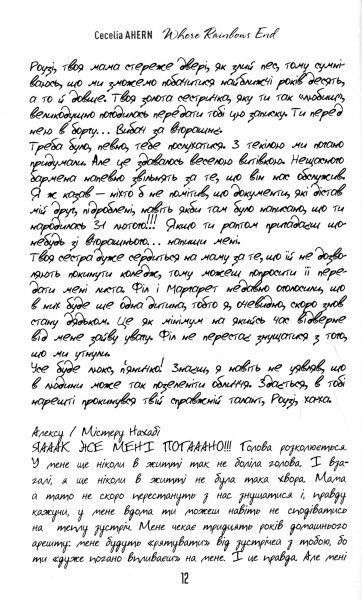 Cecelia AHERN Where Rainbows End
Роузі, твоя мама стереже двері, як злий пес, тому сумні-
ваюсь, що ми зможемо побачитися найближчі років десять,
а то й довше. Твоя золота сестричка, яку ти так «любиш»,
великодушно погодилась передати тобі цю записку. Ти перед
нею в боргу... Вибач за вчорашнє.
Треба було, певно, тебе послухатися. З текілою ми погано
придумали. Але це здавалось веселою витівкою. Нещасного
бармена напевно звільнять за те, що він нас обслужив.
Я ж казав — ніхто б не помітив, що документи, які дістав
мій друг, підроблені, навіть якби там було написано, що ти
народилась 31 лютого!!! Якщо ти раптом пригадаєш що-
небудь зі вчорашнього... напиши мені.
Твоя сестра дуже сердиться на маму за те, що їй не дозво-
ляють покинути коледж, тому можеш попросити її пере-
дати мені листа. Філ і Маргарет недавно оголосили, що
в них буде ще одна дитина, тобто я, очевидно, скоро знов
стану дядьком. Це як мінімум на якийсь час відверне
від мене зайву увагу. Філ не перестає знущатися з того,
що ми утнули.
Усе буде люкс, п'яничко! Знаєш, я навіть не уявляв, що
в людини може так позеленіти обличчя. Здається, в тобі
нарешті прокинувся твій справжній талант, Роузі, хаха.
Алексу / Містеру Нахабі
ЯАААК ЖЕ МЕНІ ПОГАААНО!!! Голова розколюється.
У мене ще ніколи в житті так не боліла голова. І вза-
галі, я ще ніколи в житті не була така хвора. Мама
а тато не скоро перестануть з нас знущатися і, правду
кажучи, у мене вдома ти можеш навіть не сподіватись
на теплу зустріч. Мене чекає тридцять років домашнього
арешту: мене будуть «рятувати» від зустрічей з тобою, бо
ти «дуже погано впливаєш» на мене. І це правда. Але мені
12